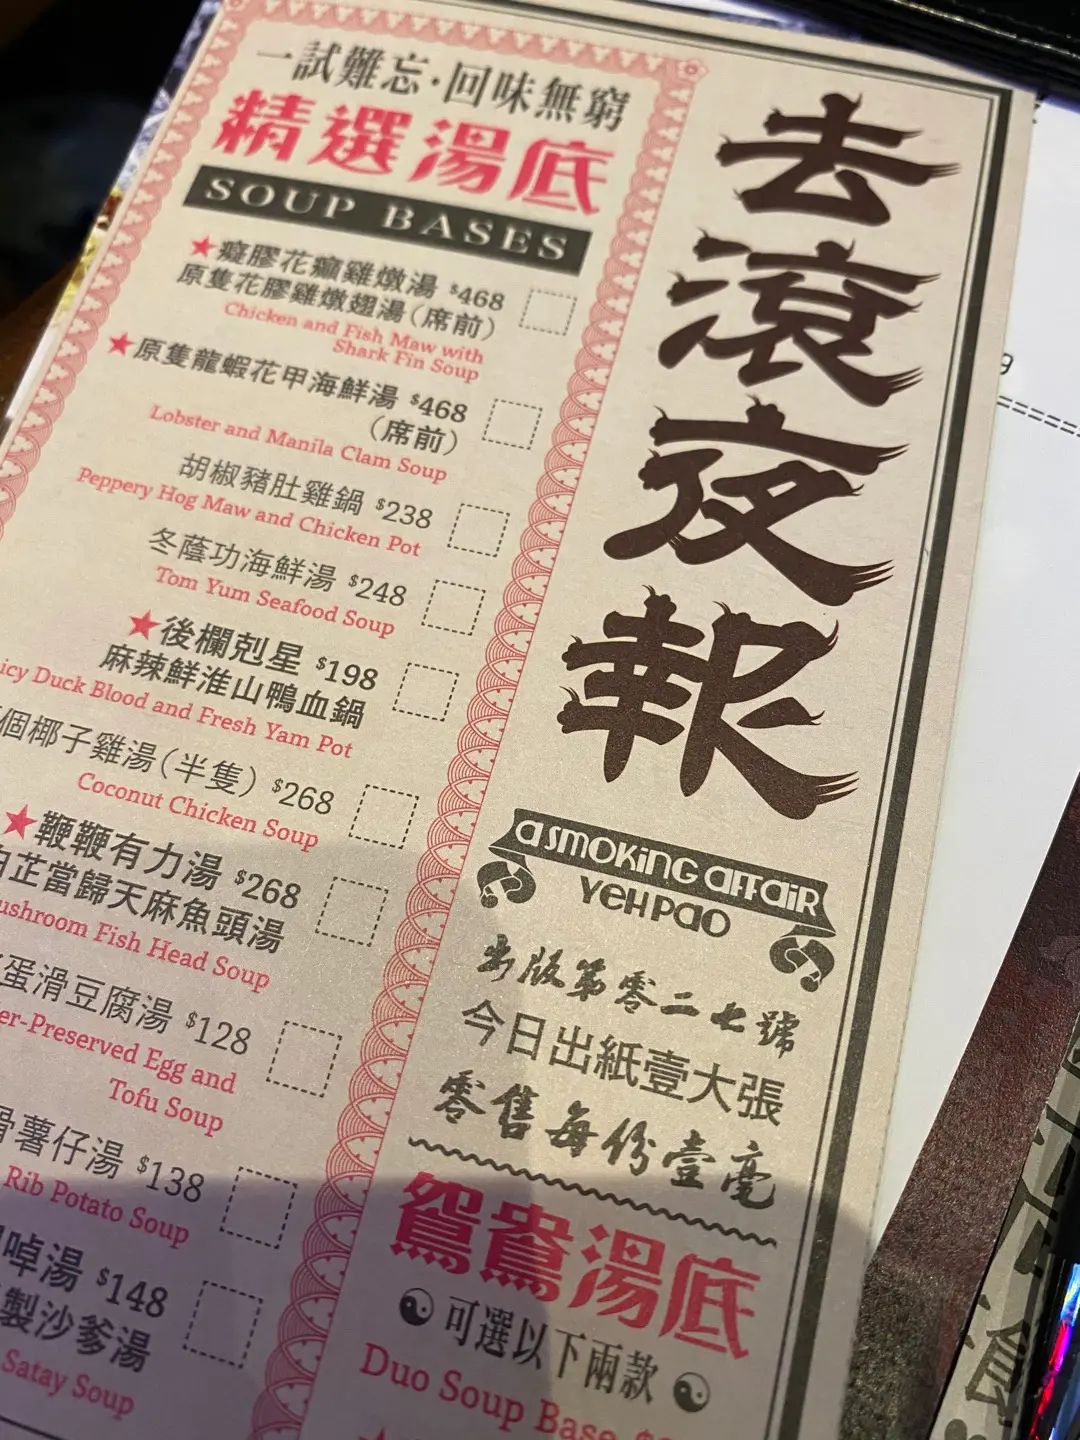 一試難忘·回味無窮
精選湯底
SOUP BASES
★癡膠花癲雞燉湯 $468
原隻花膠雞燉翅湯(席前)
Chicken and Fish Maw with
Shark Fin Soup
★原隻龍蝦花甲海鮮湯 $468
(席前)
Lobster and Manila Clam Soup
胡椒豬肚雞鍋 $238
Peppery Hog Maw and Chicken Pot
冬蔭功海鮮湯 $248
Tom Yum Seafood Soup
★後欄剋星 $198
麻辣鮮淮山鴨血鍋
Duck Blood and Fresh Yam Pot
個椰子雞湯(半隻) $268
Coconut Chicken Soup
★鞭鞭有力湯 $268
白芷當歸天麻魚頭湯
Fish Head Soup
蛋滑豆腐湯 $128
Preserved Egg and
Tofu Soup
滑薯仔湯 $138
Rib Potato Soup
啅湯 $148
製沙爹湯
Satay Soup
去滾夜報
A SMOKING AFFAIR
YEH PAO
出版第零二七號
今日出紙壹大張
零售每份壹毫
鴛鴦湯底
可選以下兩款
Duo Soup Base